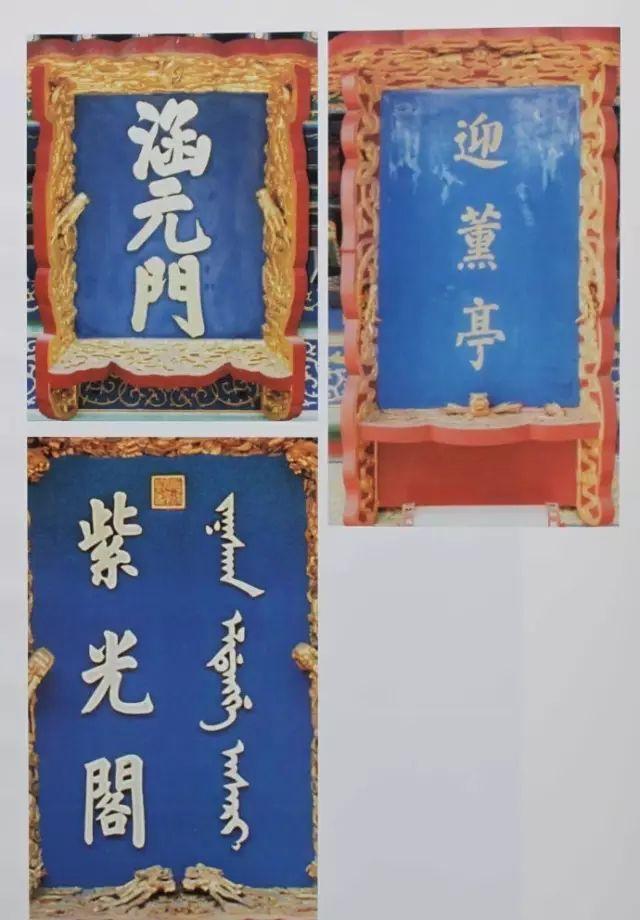 涵元門
迎薰亭
紫光閣